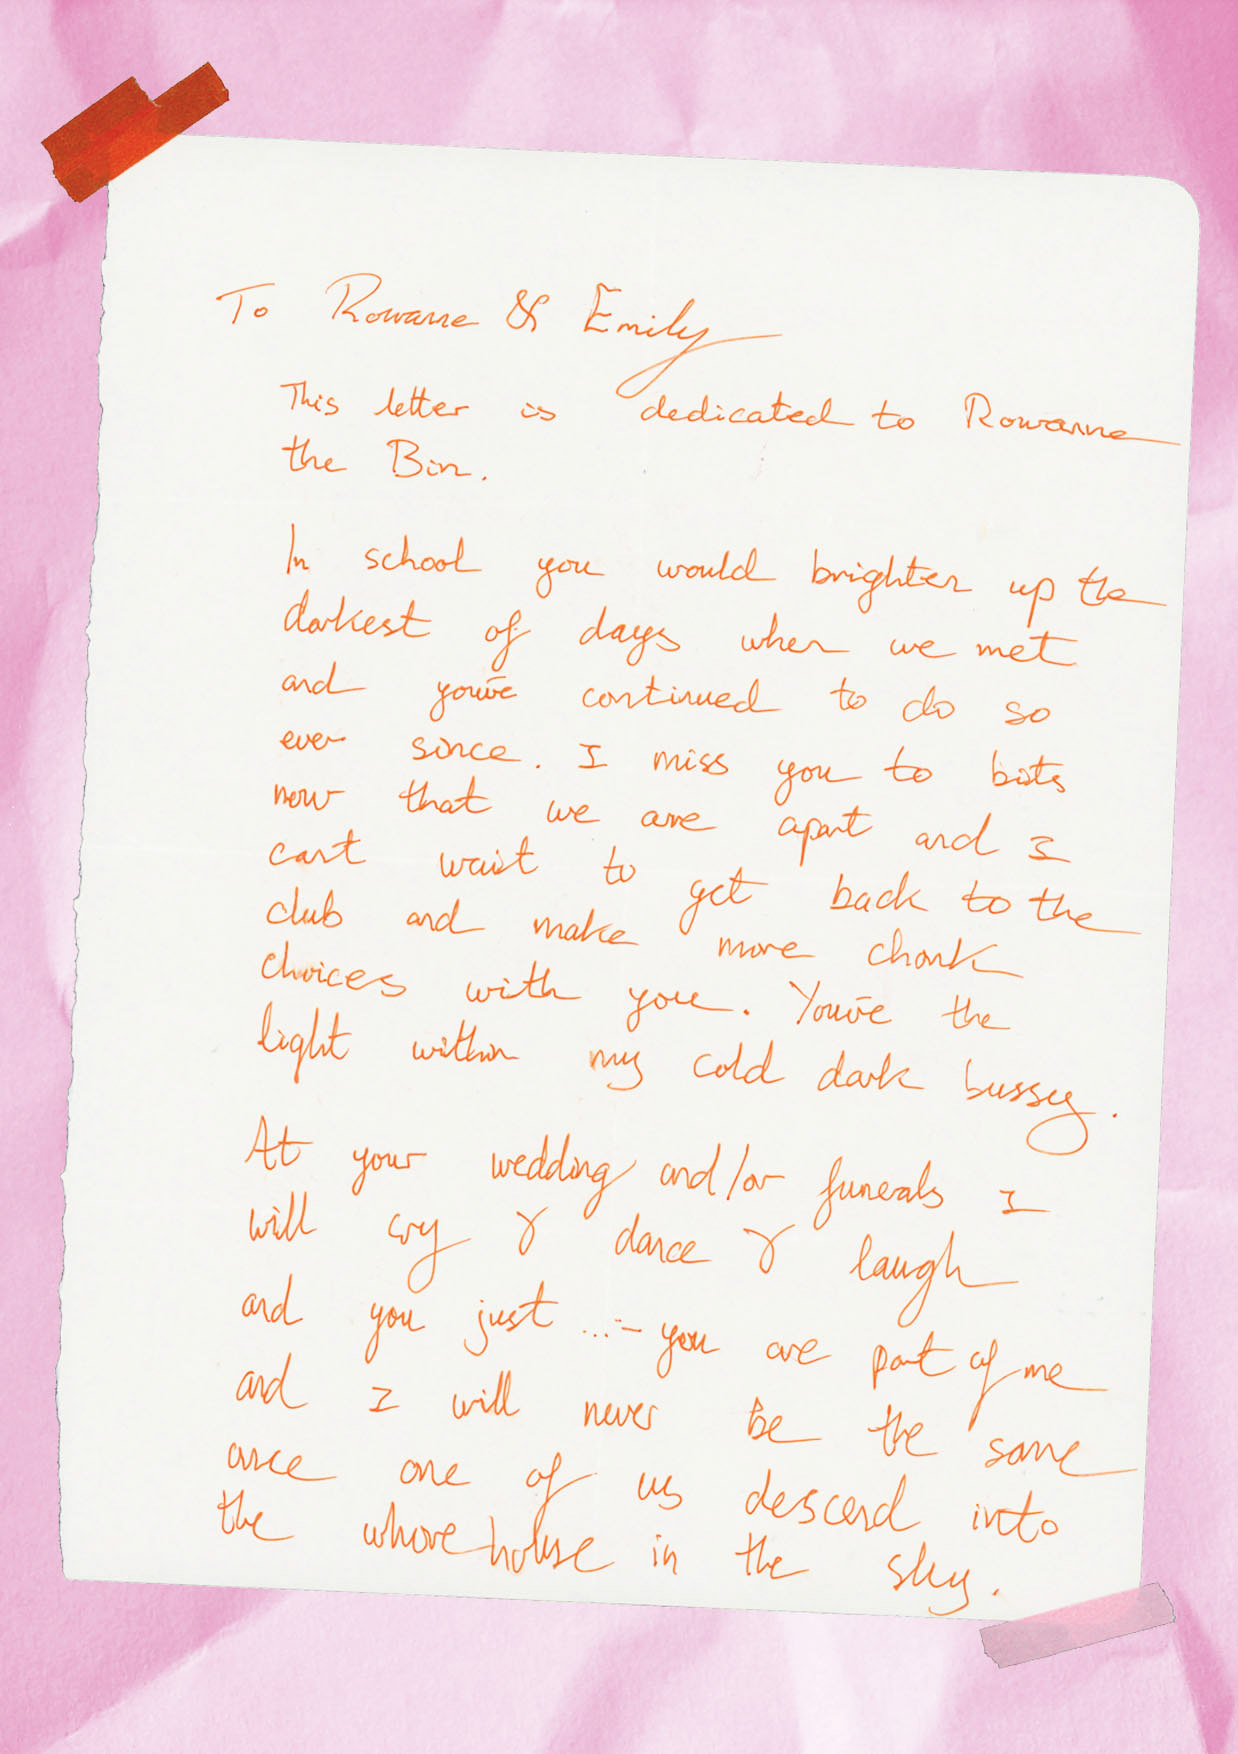 To Rowanne & Emily
This letter is dedicated to Rowanne
the Bin.
In school you would brighten up the
darkest of days when we met
and you've continued to do so
ever since. I miss you to bits
now that we are apart and I
cant wait to get back to the
club and make more chonk
choices with you. You're the
light within my cold dark bussy.
At your wedding and/or funerals I
will cry & dance & laugh
and you just ...- you are part of me
and I will never be the same
once one of us descend into
the whorehouse in the sky.